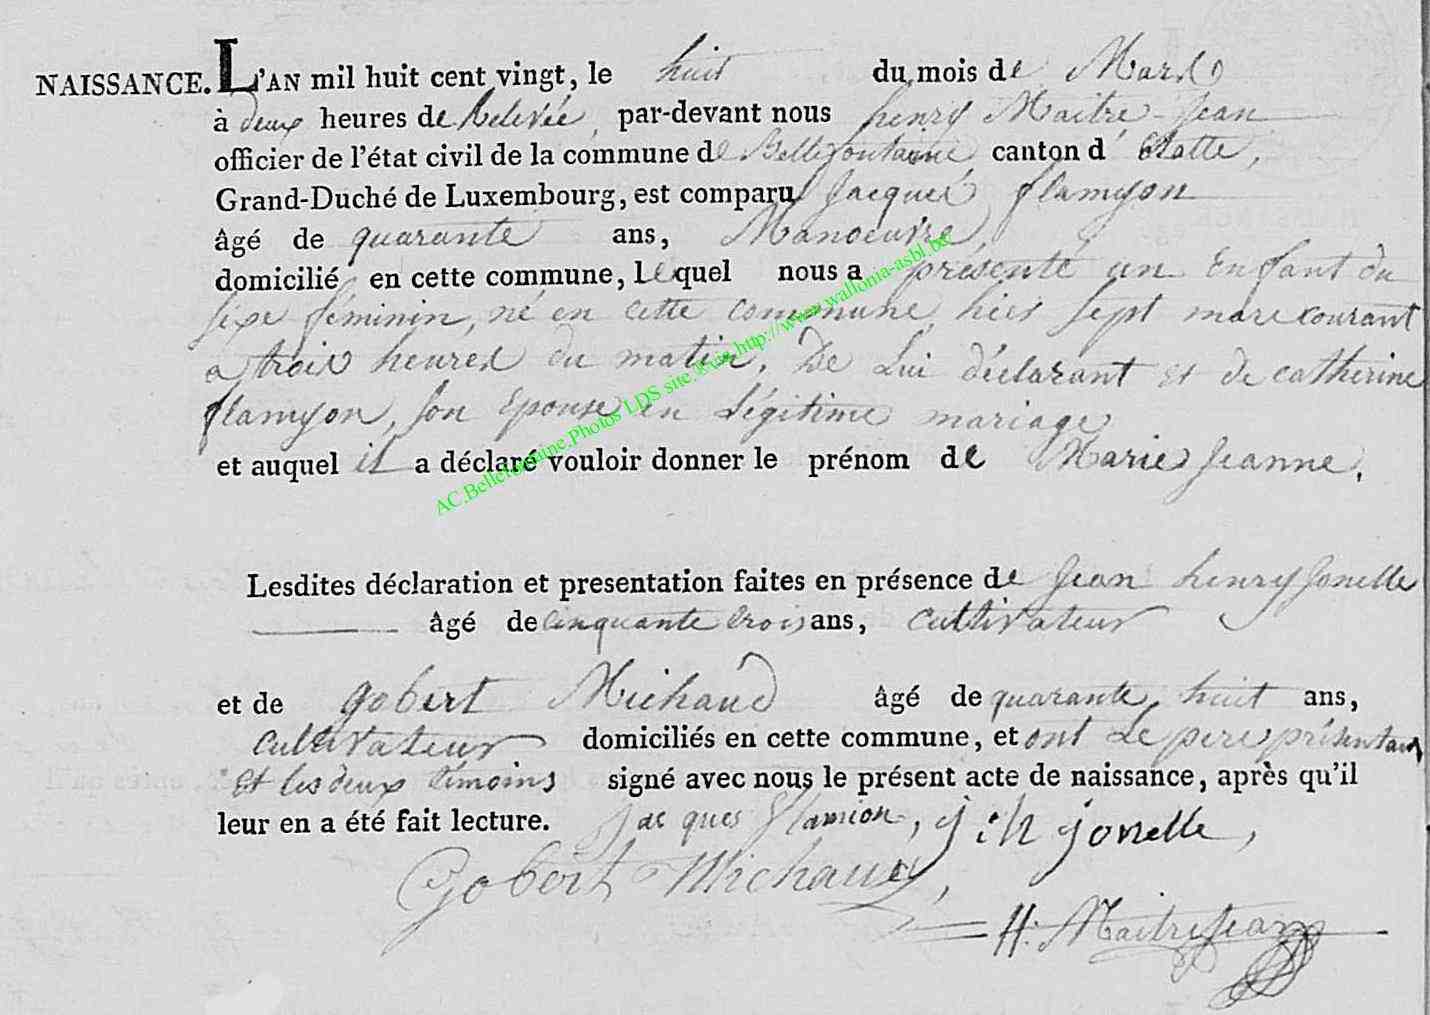 NAISSANCE. L'AN mil huit cent vingt, le huit du mois de Mars
à deux heures de Relevée, par-devant nous henry Maitre-Jean
officier de l'état civil de la commune de Bellefontaine canton d' Etalle,
Grand-Duché de Luxembourg, est comparu Jacques flamyon
âgé de quarante ans, Manoeuvre,
domicilié en cette commune, lequel nous a présenté un Enfant du
sexe féminin, né en cette commune, hier sept mars courant
a trois heures du matin, De Lui déclarant et de catherine
flamyon, son Epouse en Légitime mariage
et auquel il a déclaré vouloir donner le prénom de Marie Jeanne,
Lesdites déclaration et presentation faites en présence de Jean henry Jonelle
âgé de cinquante trois ans, cultivateur
et de gobert Michaud âgé de quarante huit ans,
cultivateur domiciliés en cette commune, et ont Le pere présentant
et les deux témoins signé avec nous le présent acte de naissance, après qu'il
leur en a été fait lecture. Jacques flamion, j: h jonelle,
Gobert Michaux,
H: MaitreJean
AC.Bellefontaine.Photos LDS site Ouie http://www.wallonia-asbl.be